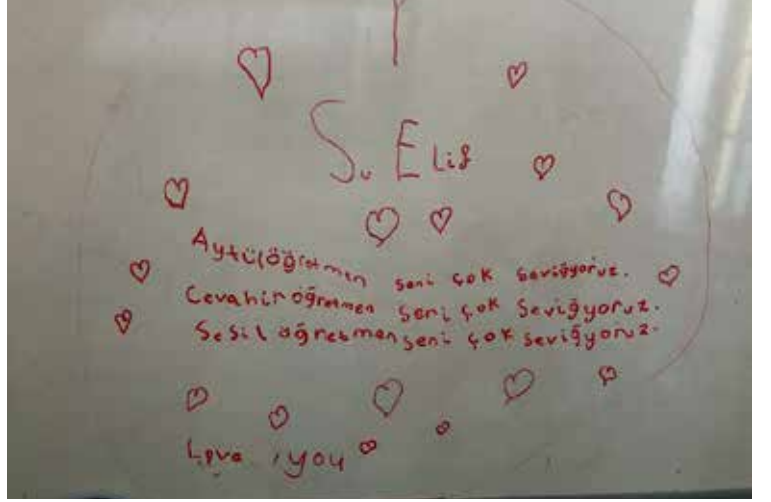 Su Elif
Aytül öğretmen seni çok seviğyoruz.
Cevahir öğretmen seni çok seviğyoruz.
Sesil öğretmen seni çok seviğyoruz.
Love , you